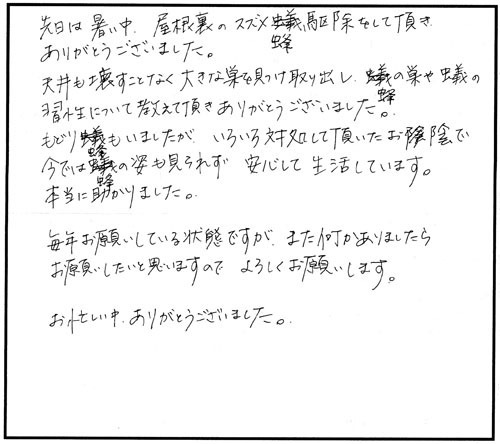 先日は暑い中、屋根裏のスズメ蜂駆除をして頂き
ありがとうございました。
天井も壊すことなく大きな巣を見つけ取り出し、蜂の巣や蜂の
習性について教えて頂きありがとうございました。
もどり蜂もいましたが、いろいろ対処して頂いたお陰で
今では蜂の姿も見られず 安心して生活しています。
本当に助かりました。
毎年お願いしている状態ですが、また何かありましたら
お願いしたいと思いますので よろしくお願いします。
お忙しい中、ありがとうございました。